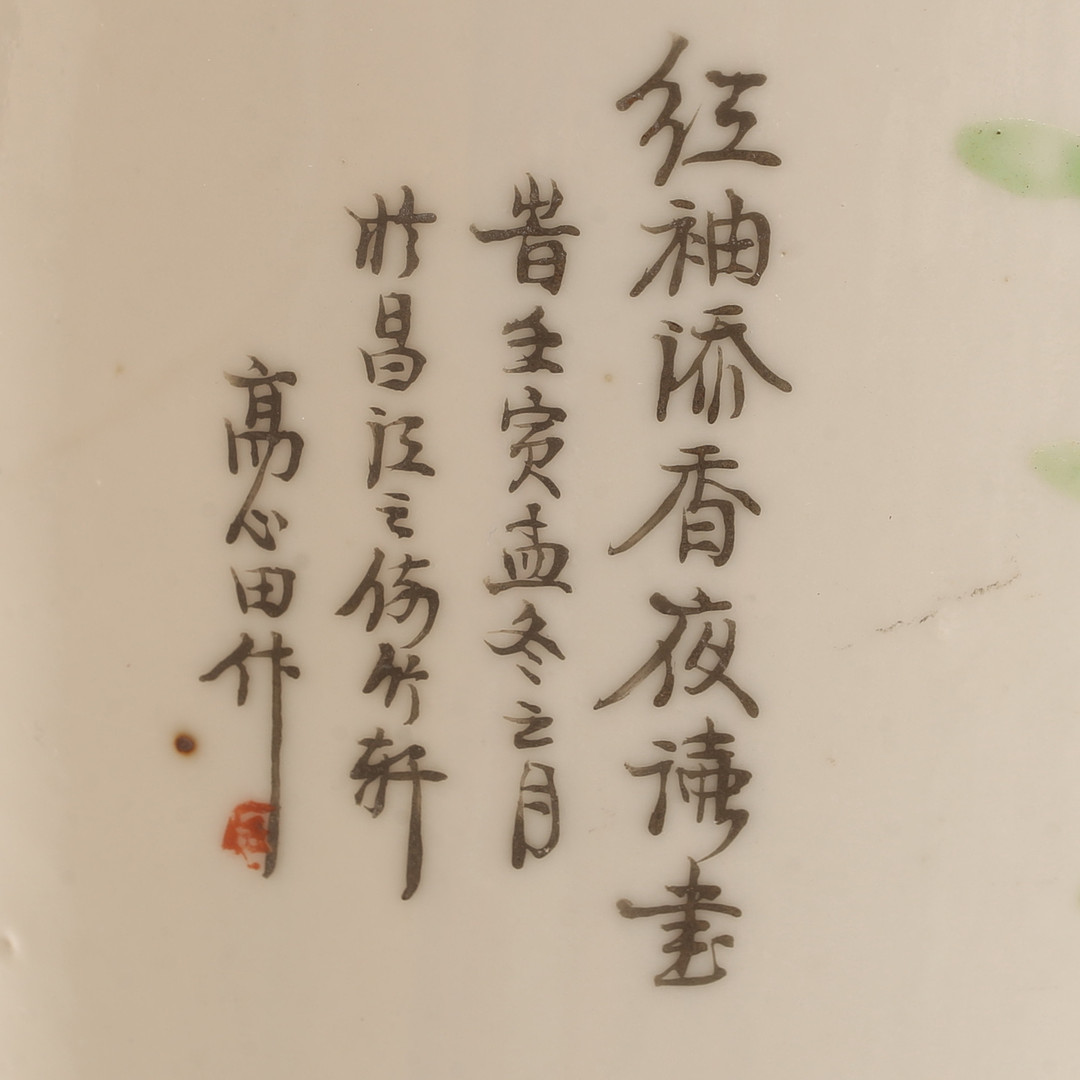 紅袖添香夜讀書
峕壬寅孟冬之月
於昌江之倚竹軒
高心田作